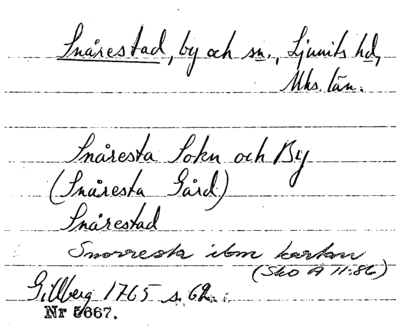 Snårestad, by och sn., Ljunits hd,
Mhs. län.
Snåresta Sokn och By
(Snåresta Gård)
Snårestad
Snorresta ibm kartan
(Sko A 11:86)
Gillberg 1765 s. 62.
Nr 5667.